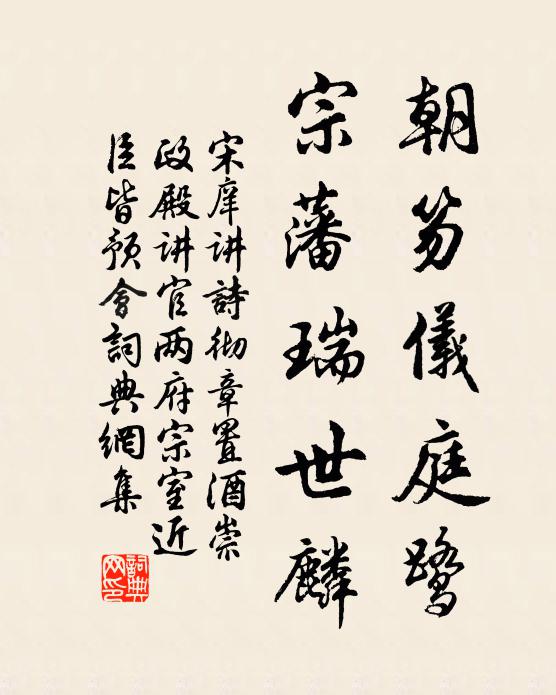 朝笏儀庭鹭
宗藩瑞世麟
宋庠讲詩彻章置酒崇
政殿讲官两府宗室近
臣皆预會詞典網集
詞典网印